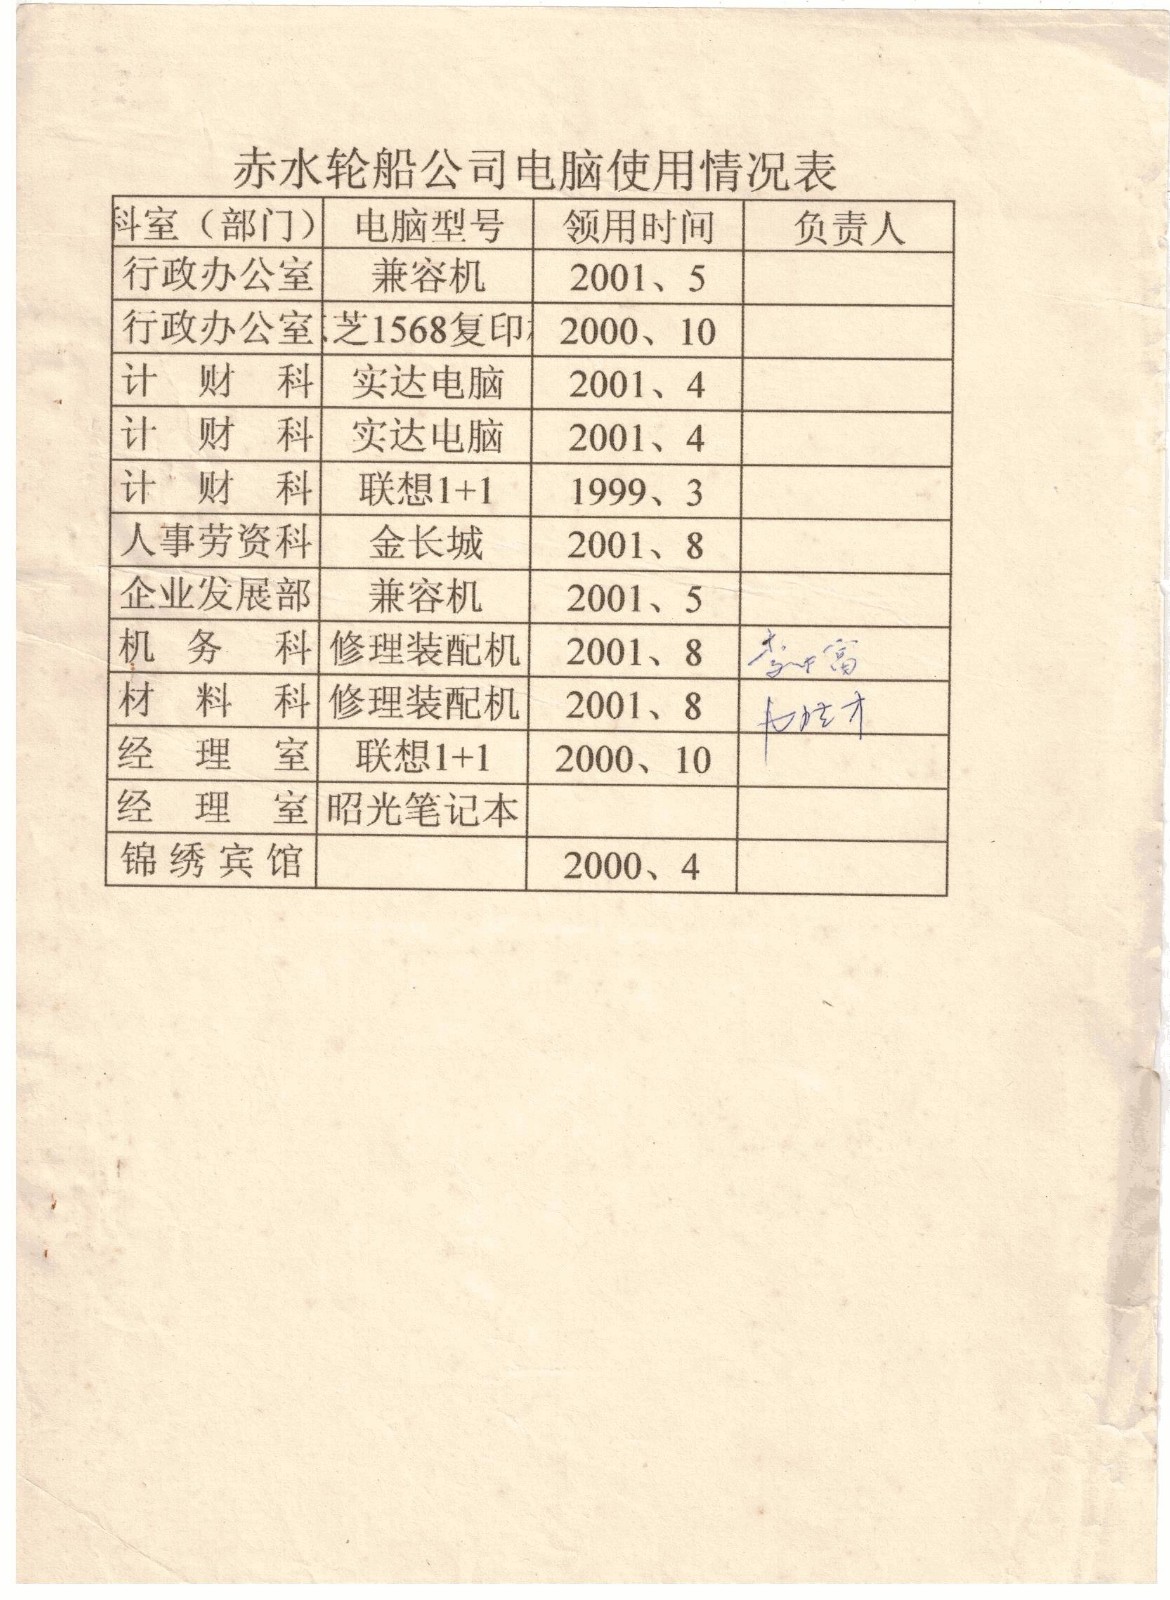 赤水轮船公司电脑使用情况表
科室（部门） 电脑型号 领用时间 负责人
行政办公室 兼容机 2001、5
行政办公室 芝1568复印 2000、10
计财科 实达电脑 2001、4
计财科 实达电脑 2001、4
计财科 联想1+1 1999、3
人事劳资科 金长城 2001、8
企业发展部 兼容机 2001、5
机务科 修理装配机 2001、8
材料科 修理装配机 2001、8
经理室 联想1+1 2000、10
经理室 昭光笔记本
锦绣宾馆 2000、4